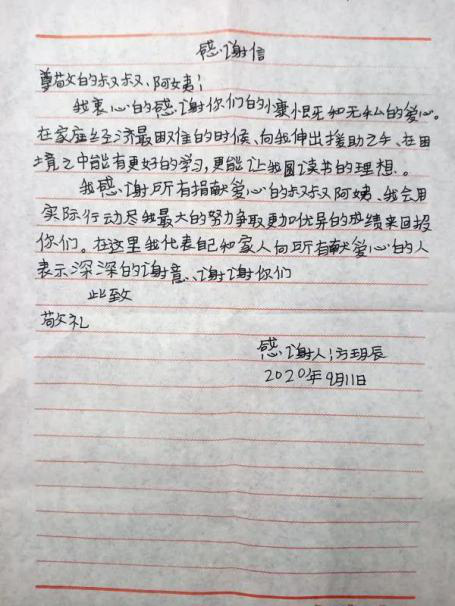 感谢信
尊敬的叔叔、阿姨；
我衷心的感谢你们的和无私的爱心。
在家庭经济最困难的时候、向我伸出援助之手、在困
境之中能有更好的学习，更能让我圆读书的理想．。
我感谢所有捐献爱心的叔叔阿姨、我会用
实际行动尽我最大的努力争取更加优异的成绩来回报
你们。在这里我代表自己和家人向所有献爱心的人
表示深深的谢意、谢谢你们
此致
敬礼
感谢人；方玥辰
2020年9月11日